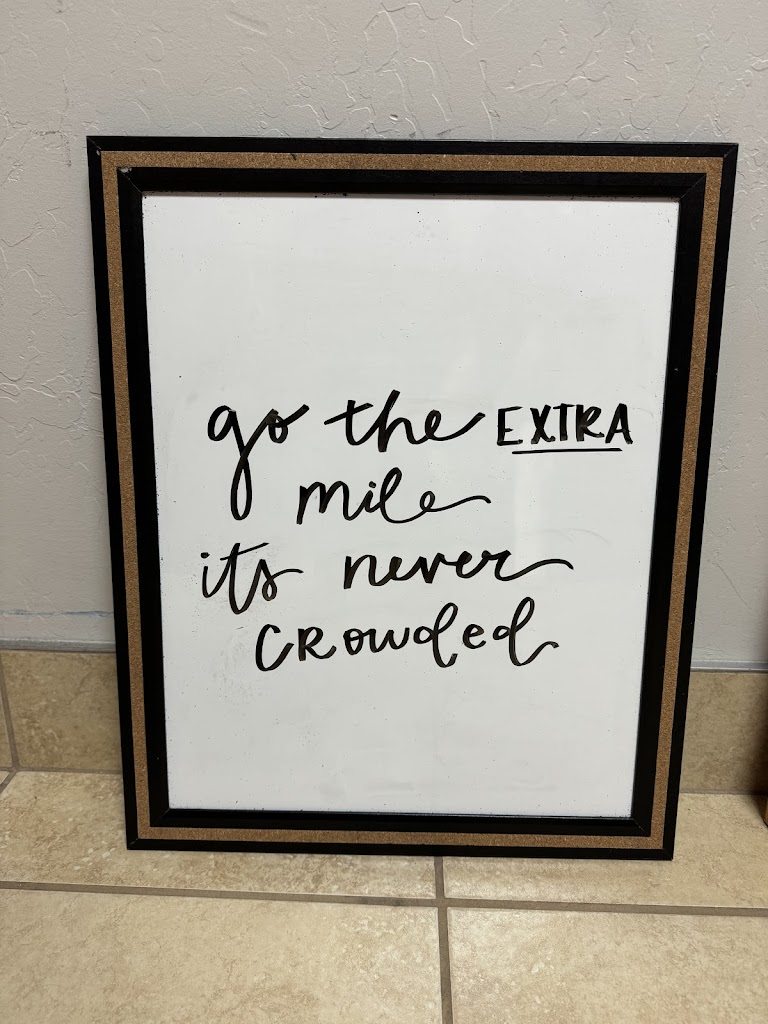 go the EXTRA
mile
its never
crowded